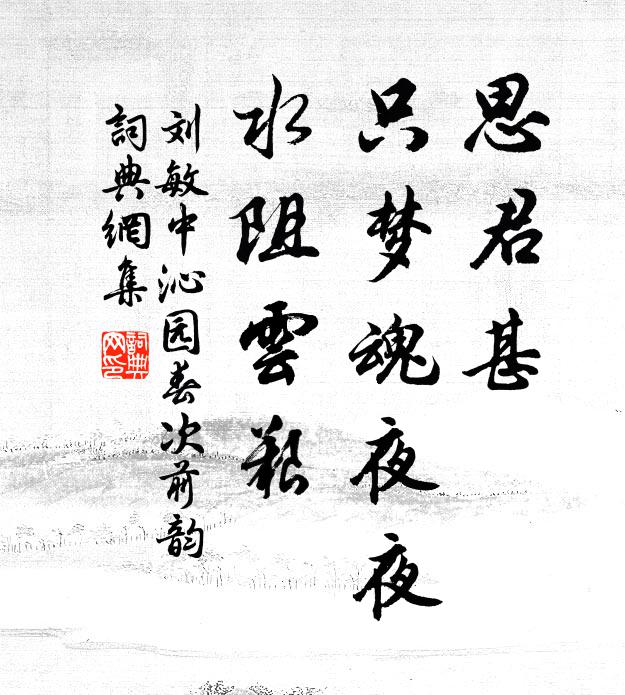 思君甚
只梦魂夜夜
水阻雲艱
刘敏中沁园春次前韵
詞典網集
詞典網印